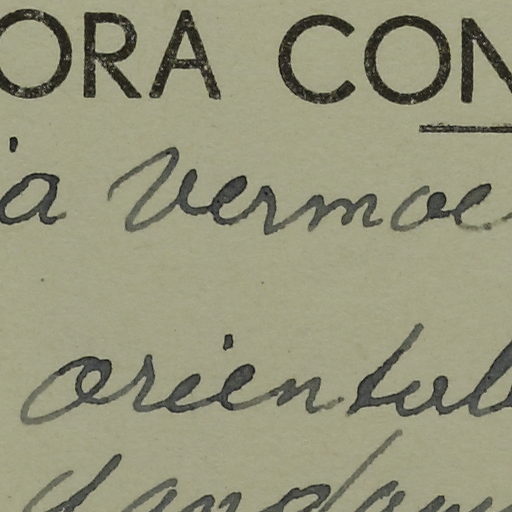 ORA CON
ia vermoe
oriental